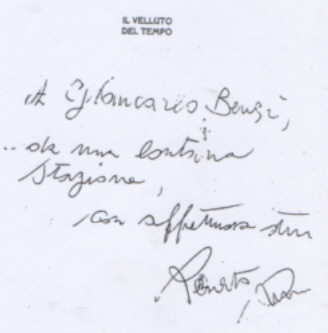 IL VELLUTO
DEL TEMPO
A Giancarlo Bengi,
.. da una lontana
stazione,
con affettuosa stima
Roberto